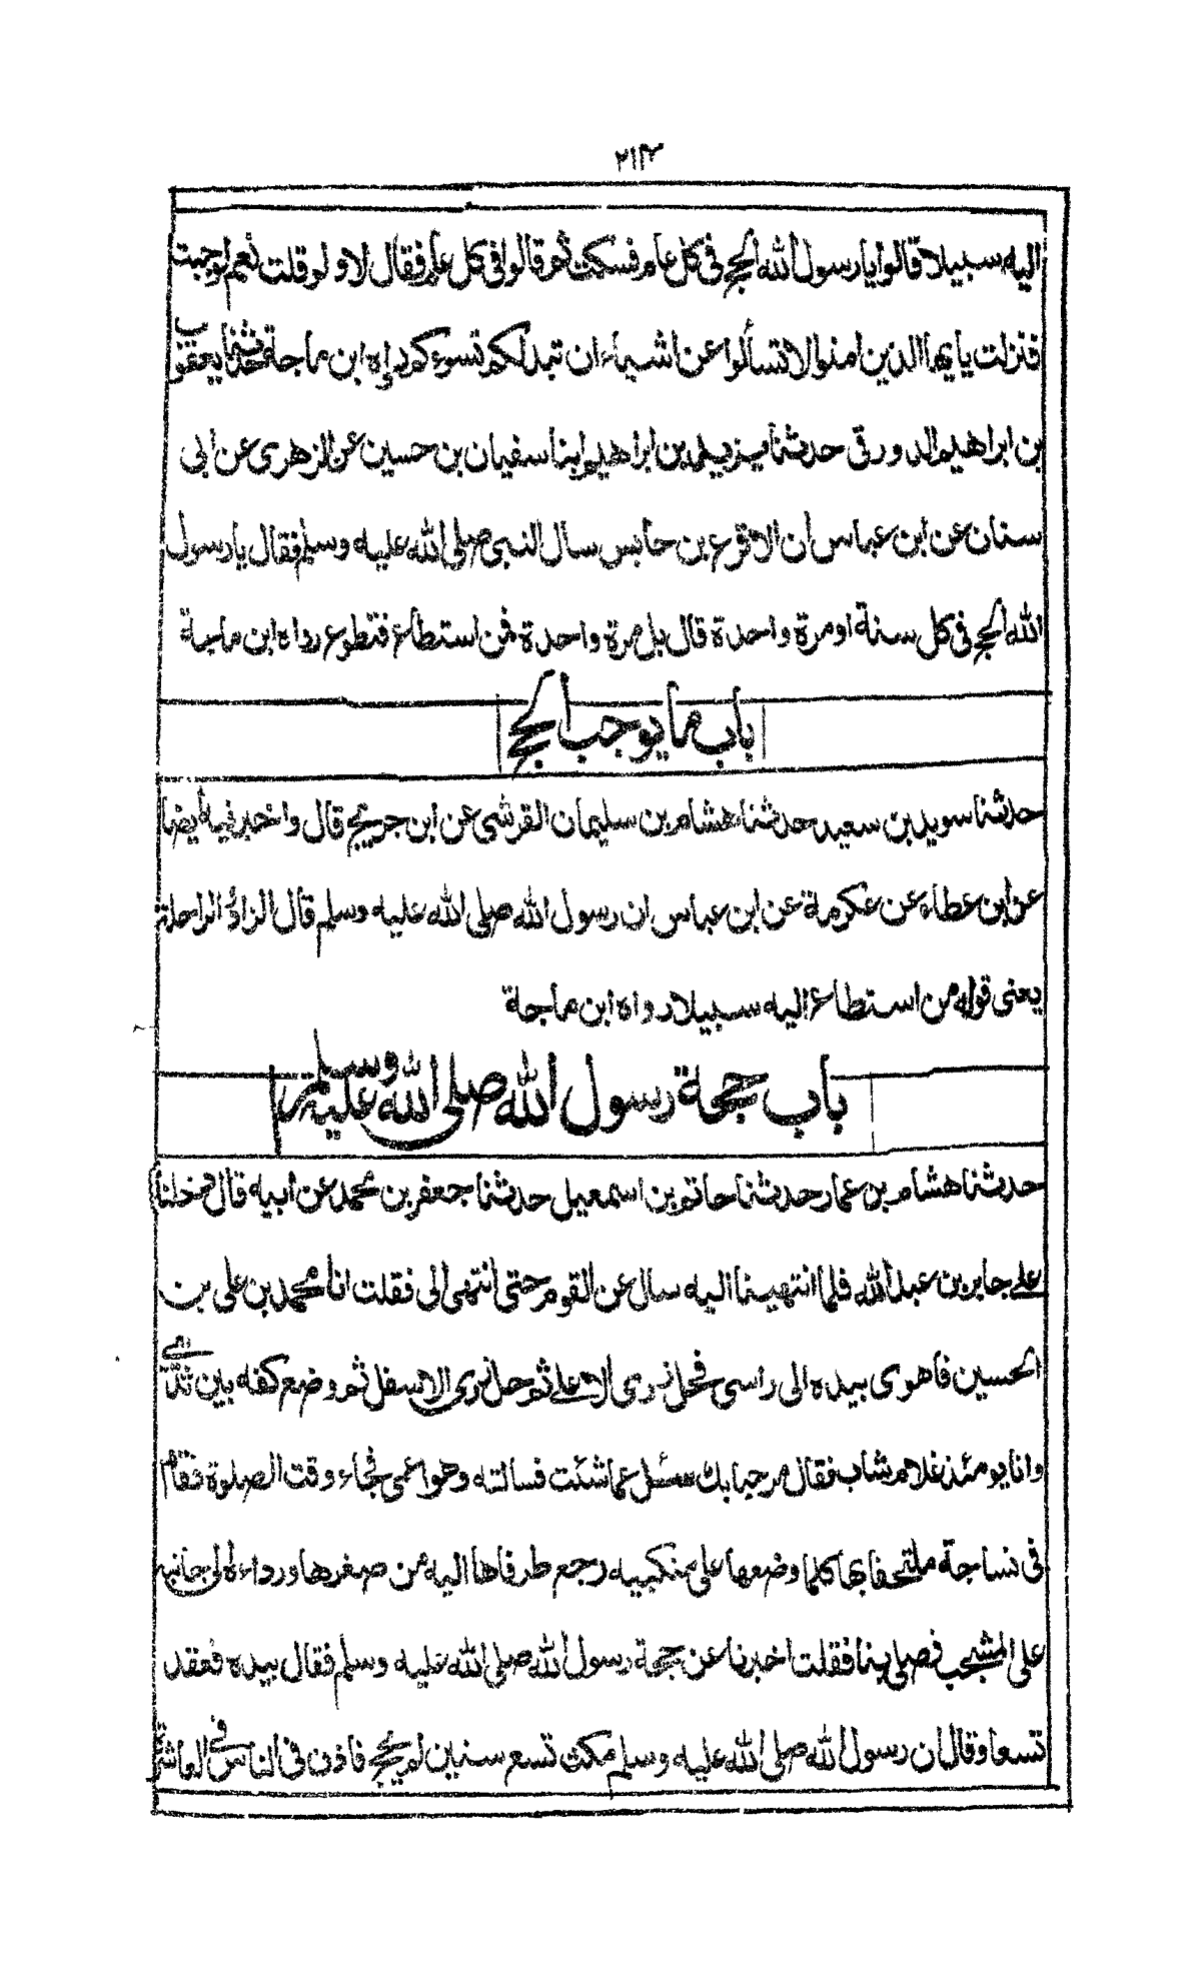 ٢١٣
اليه سبيلا قالوا يا رسول الله الحج فى كل عام فسكت ثم قالوا فى كل عام فقال لا ولو قلت نعم لوجبت
فنزلت يايها الذين امنوا لا تسألوا عن اشياء ان تبدلكم تسوءكم رواه ابن ماجة حدثنا يعقوب
بن ابراهيم الدورقى حدثنا يزيد بن ابراهيم ابنا سفيان بن حسين عن الزهرى عن ابى
سنان عن ابن عباس ان الاقرع بن حابس سال النبى صلى الله عليه وسلم فقال يا رسول
الله الحج فى كل سنة او مرة واحدة قال بل مرة واحدة فمن استطاع فتطوع رواه ابن ماجة
باب ما يوجب الحج
حدثنا سويد بن سعيد حدثنا هشام بن سليمان القرشى عن ابن جريج قال واخبرنيه ايضا
عن ابن عطاء عن عكرمة عن ابن عباس ان رسول الله صلى الله عليه وسلم قال الزاد والراحلة
يعنى قوله من استطاع اليه سبيلا رواه ابن ماجة
باب حجة رسول الله صلى الله عليه وسلم
حدثنا هشام بن عمار حدثنا حاتم بن اسمعيل حدثنا جعفر بن محمد عن ابيه قال دخلنا
على جابر بن عبد الله فلما انتهينا اليه سال عن القوم حتى انتهى الى فقلت انا محمد بن على بن
الحسين فاهوى بيده الى راسى فحل زرى الاعلى ثم حل زرى الاسفل ثم وضع كفه بين ثديى
وانا يومئذ غلام شاب فقال مرحبا بك سئل عما شئت فسالته وهو اعمى فجاء وقت الصلوة فقام
فى نساجة ملتحفا بها كلما وضعها على منكبيه رجع طرفاها اليه من صغرها ورداءه الى جانبه
على المشجب فصلى بنا فقلت اخبرنا عن حجة رسول الله صلى الله عليه وسلم فقال بيده فعقد
تسعا وقال ان رسول الله صلى الله عليه وسلم مكث تسع سنين لم يحج فاذن فى الناس فى العاشرة